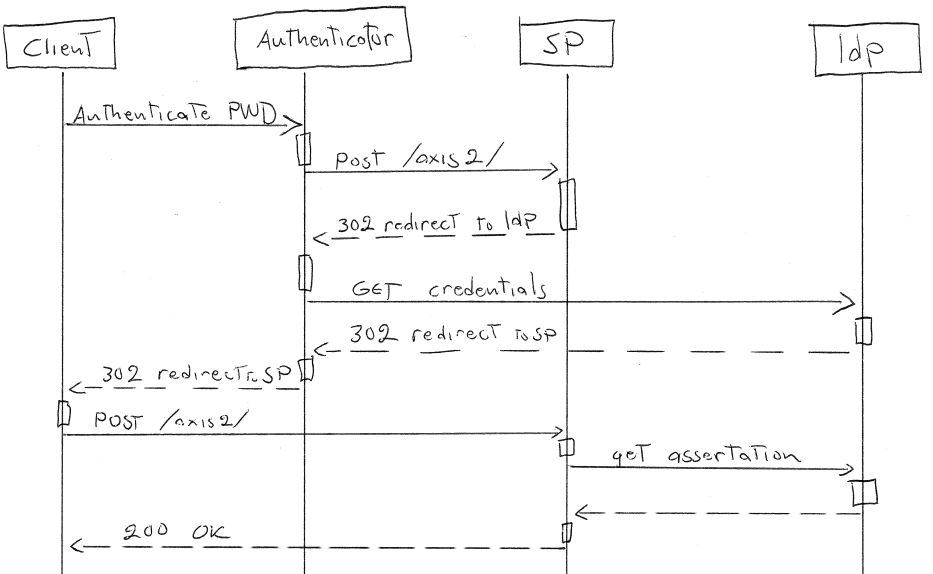 Client
Authenticator
SP
Idp
Authenticate PWD
POST /axis2/
302 redirect to Idp
GET credentials
302 redirect to SP
302 redirect to SP
POST /axis2/
get assertation
200 OK